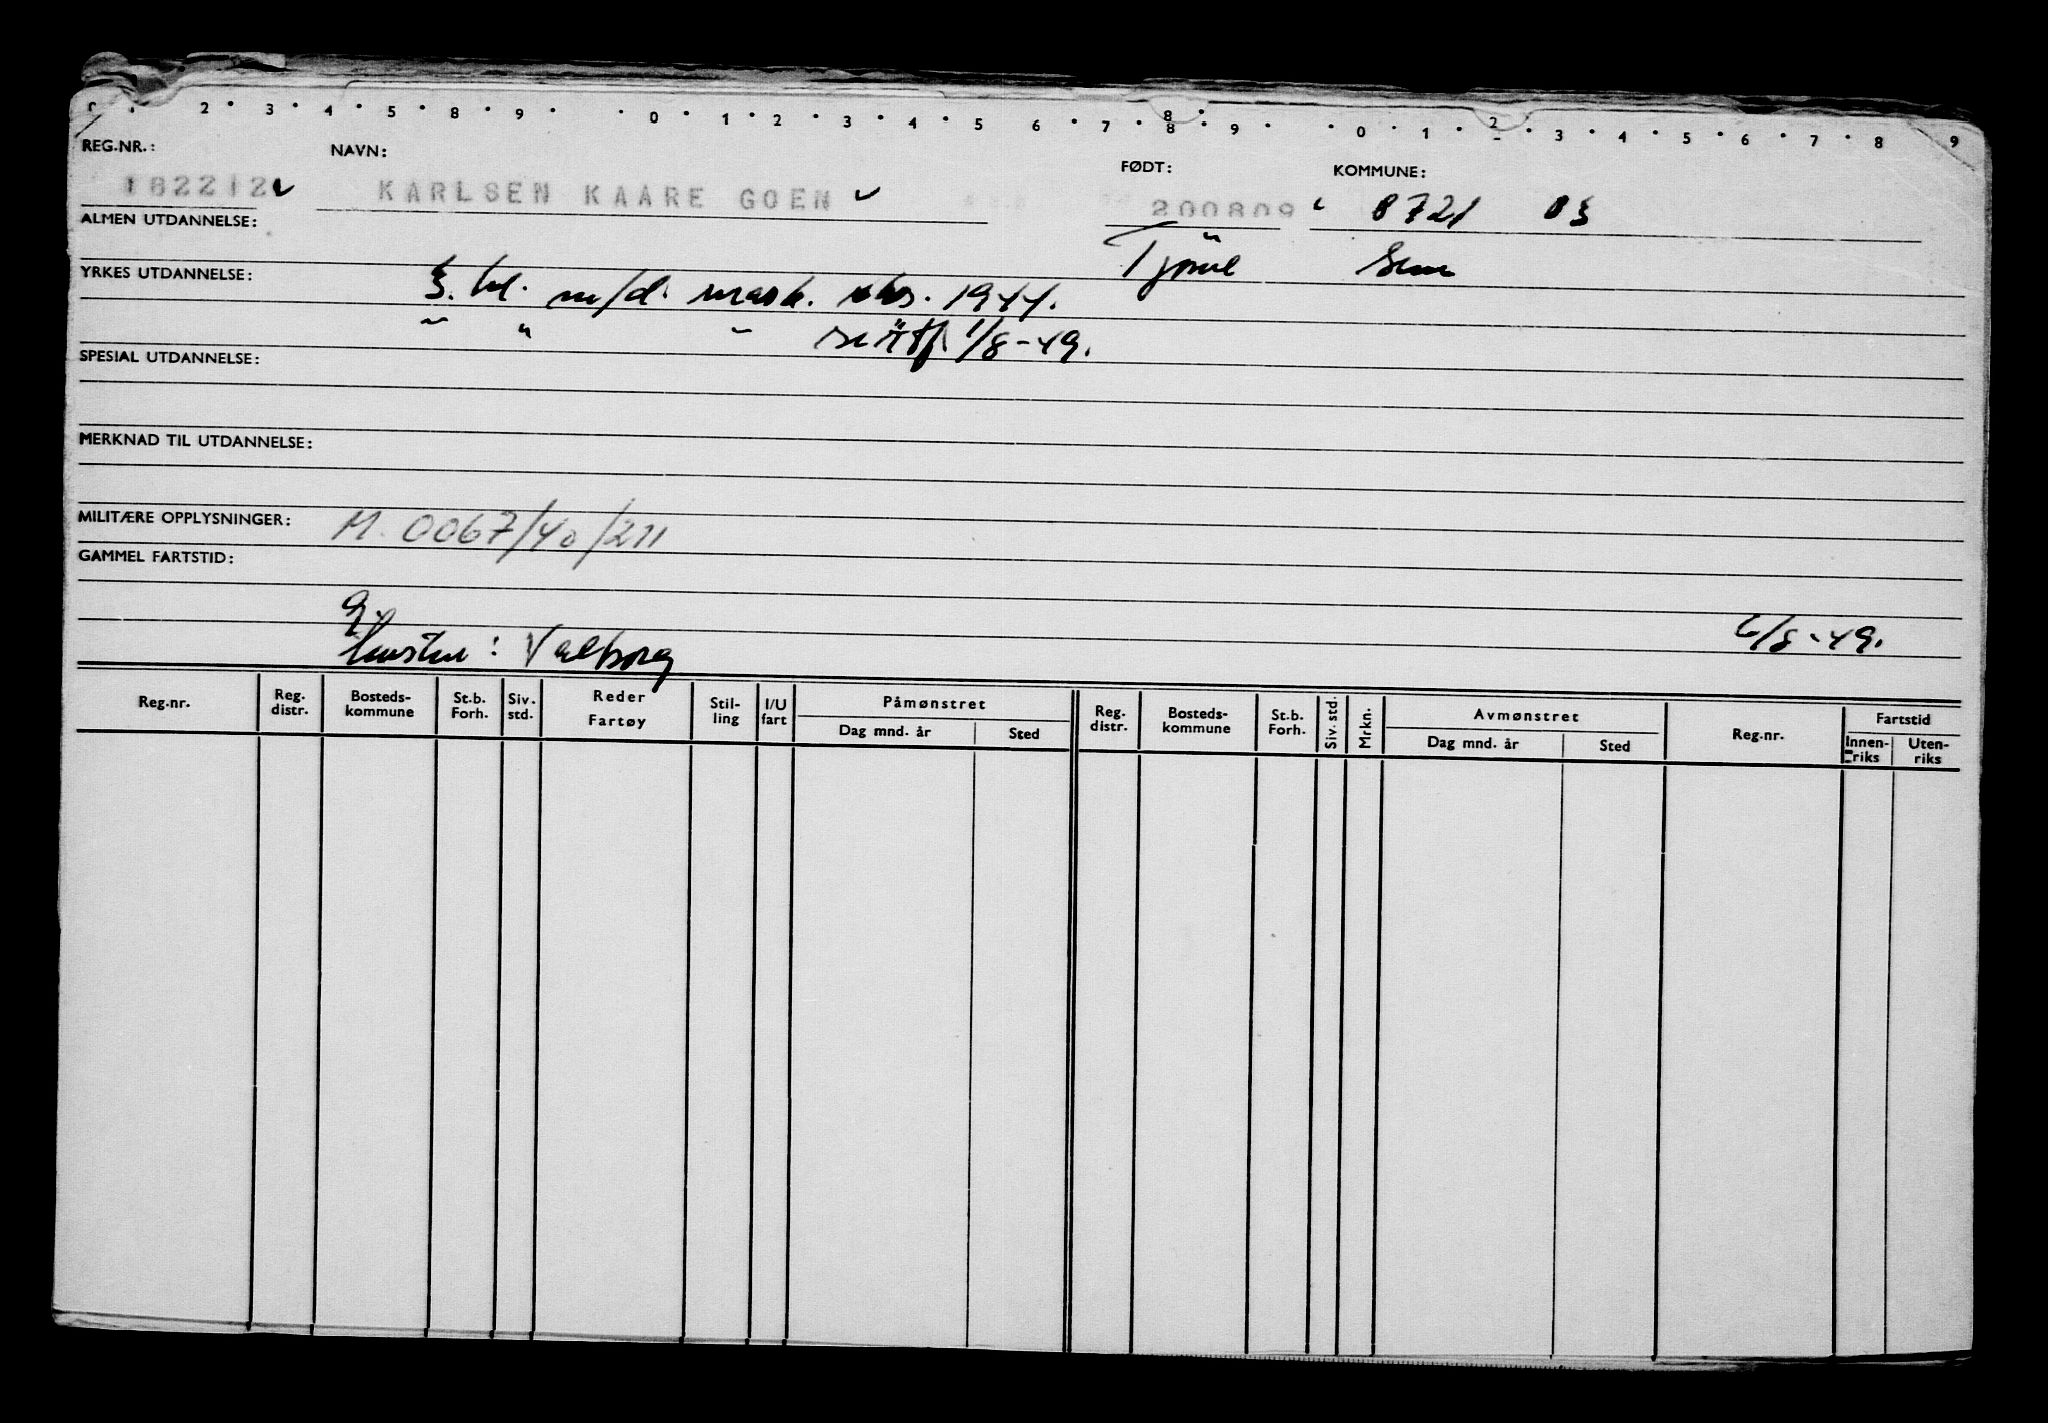 2 3 4 5 8 9 0 1 2 3 4 5 6 7 8 8 9 0 1 2 3 4 5 6 7 8 9
REG.NR.: NAVN: FØDT: KOMMUNE:
182212 KARLSEN KAARE GOEN 200809 0721 03
ALMEN UTDANNELSE: Tjöme Sem
YRKES UTDANNELSE: 3. kl. m/d. mask. eks. 1944.
" " " sertf. 1/8-49.
SPESIAL UTDANNELSE:
MERKNAD TIL UTDANNELSE:
MILITÆRE OPPLYSNINGER: M. 0067/40/211
GAMMEL FARTSTID:
g. 6/8-49.
Hustru: Valborg
Reg.nr. Reg. distr. Bosteds-kommune St.b. Forh. Siv. std. Reder Fartøy Stil-ling I/U fart Påmønstret Dag mnd. år Sted Reg. distr. Bosteds-kommune St.b. Forh. Siv. std. Mrkn. Avmønstret Dag mnd. år Sted Reg.nr. Fartstid Innen-riks Uten-riks